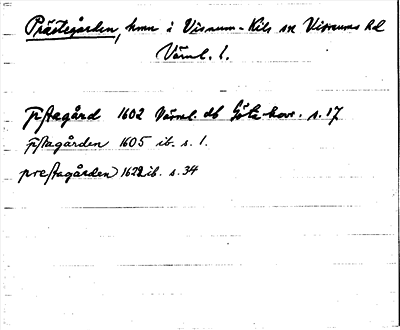 Prästegården, hmn i Visnum-Kils sn Visnums hd
Värml. l.
p̄stagård 1602 Värml. db Göta hovr. s. 17
p̄stagården 1605 ib. s. 1.
prestagården 1622 ib. s. 34